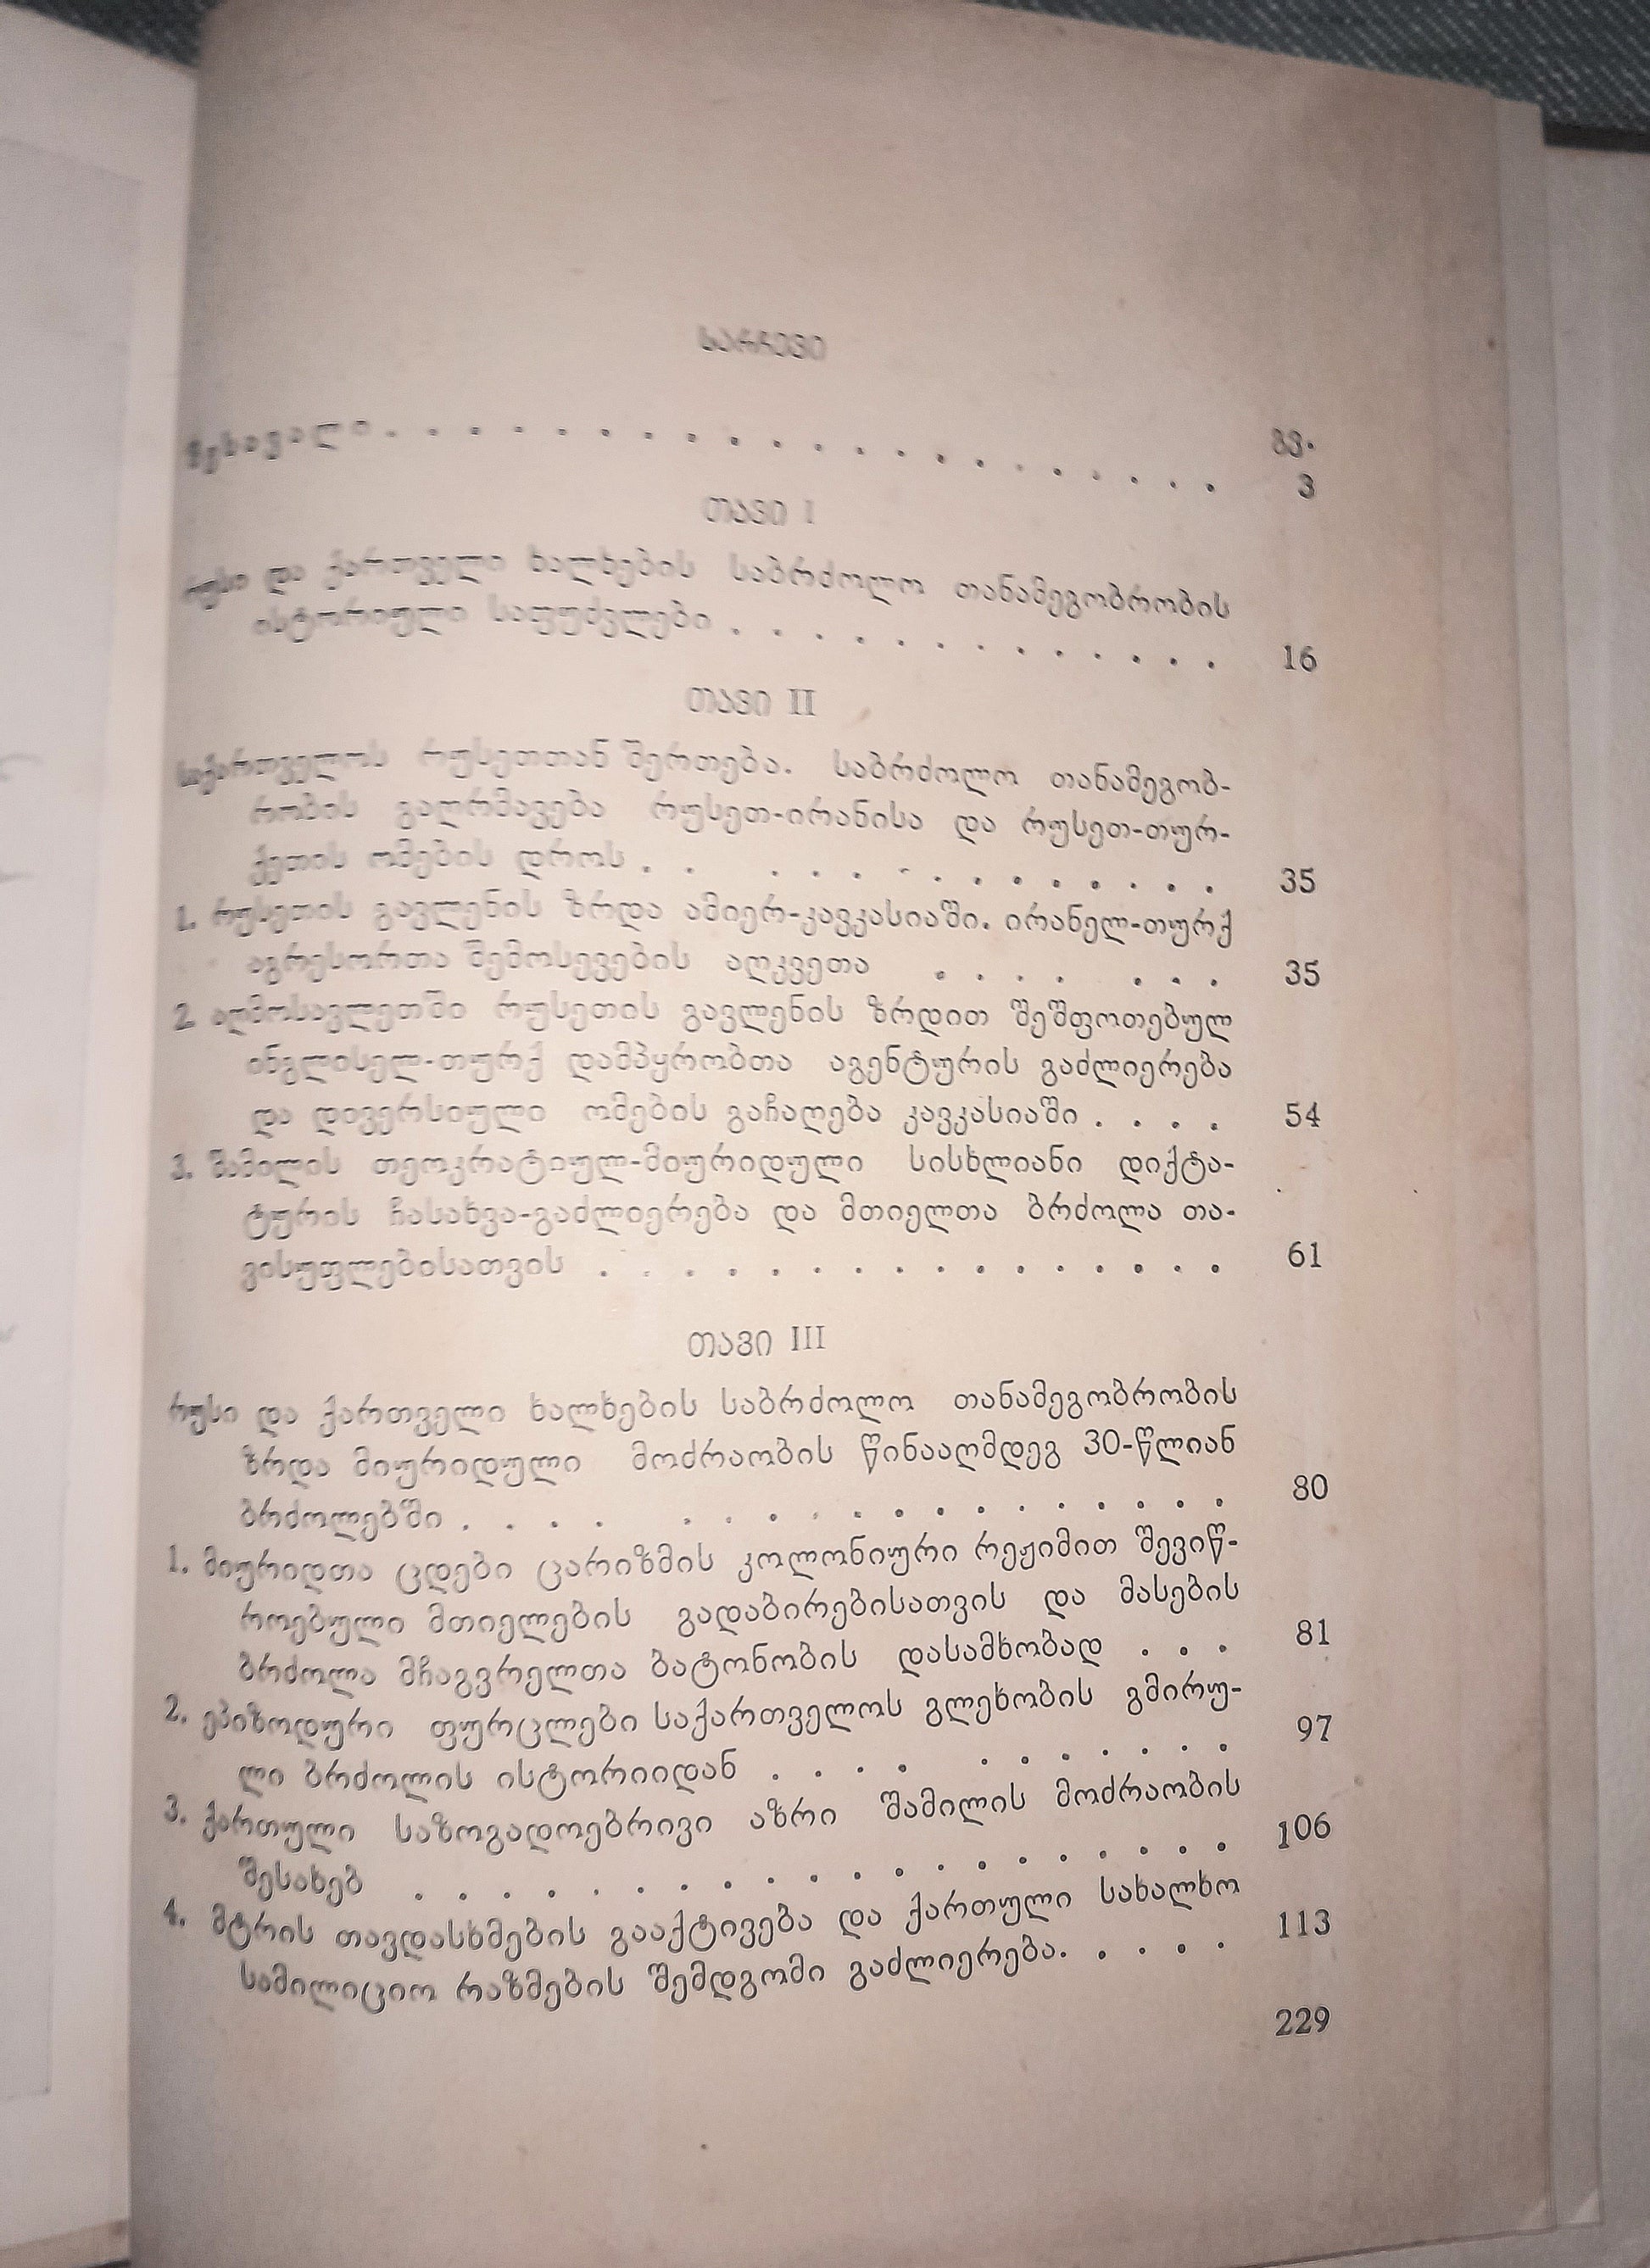 სარჩევი
გვ.
შესავალი . . . . . . . . . . . . . . . . . . . . . 3
თავი I
რუსი და ქართველი ხალხების საბრძოლო თანამეგობრობის
ისტორიული საფუძვლები . . . . . . . . . . . . . 16
თავი II
საქართველოს რუსეთთან შეერთება. საბრძოლო თანამეგობ-
რობის გაღრმავება რუსეთ-ირანისა და რუსეთ-თურ-
ქეთის ომების დროს . . . . . . . . . . . . . . 35
1. რუსეთის გავლენის ზრდა ამიერ-კავკასიაში. ირანელ-თურქ
აგრესორთა შემოსევების აღკვეთა . . . . . . . 35
2. აღმოსავლეთში რუსეთის გავლენის ზრდით შეშფოთებულ
ინგლისელ-თურქ დამპყრობთა აგენტურის გაძლიერება
და დივერსიული ომების გაჩაღება კავკასიაში . . . . 54
3. შამილის თეოკრატიულ-მიურიდული სისხლიანი დიქტა-
ტურის ჩასახვა-გაძლიერება და მთიელთა ბრძოლა თა-
ვისუფლებისათვის . . . . . . . . . . . . . . . . 61
თავი III
რუსი და ქართველი ხალხების საბრძოლო თანამეგობრობის
ზრდა მიურიდული მოძრაობის წინააღმდეგ 30-წლიან
ბრძოლებში . . . . . . . . . . . . . . . . . . 80
1. მიურიდთა ცდები ცარიზმის კოლონიური რეჟიმით შევიწ-
როებული მთიელების გადაბირებისათვის და მასების
ბრძოლა მჩაგვრელთა ბატონობის დასამხობად . . . 81
2. ეპიზოდური ფურცლები საქართველოს გლეხობის გმირუ-
ლი ბრძოლის ისტორიიდან . . . . . . . . . . . 97
3. ქართული საზოგადოებრივი აზრი შამილის მოძრაობის
შესახებ . . . . . . . . . . . . . . . . . . . 106
4. მტრის თავდასხმების გააქტივება და ქართული სახალხო
სამილიციო რაზმების შემდგომი გაძლიერება. . . . . 113
229